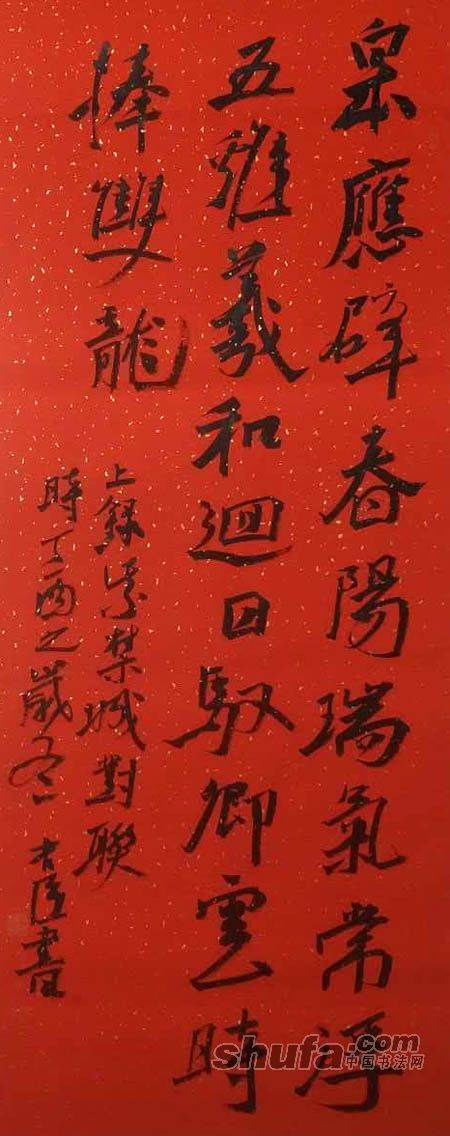 皋應辟春陽瑞氣常浮
五雉羲和迴日馭卿雲時
捧雙龍
上録紫禁城對聯
時丁酉之歲冬 書
shufa.com
中国书法网